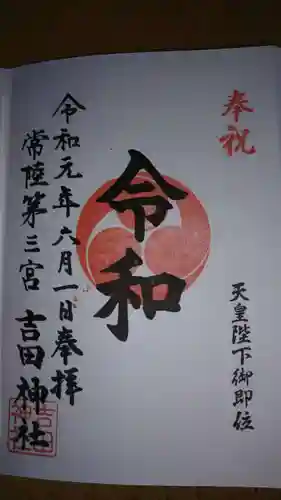 奉祝
天皇陛下御即位
令和
令和元年六月一日奉拝
常陸第三宮 吉田神社